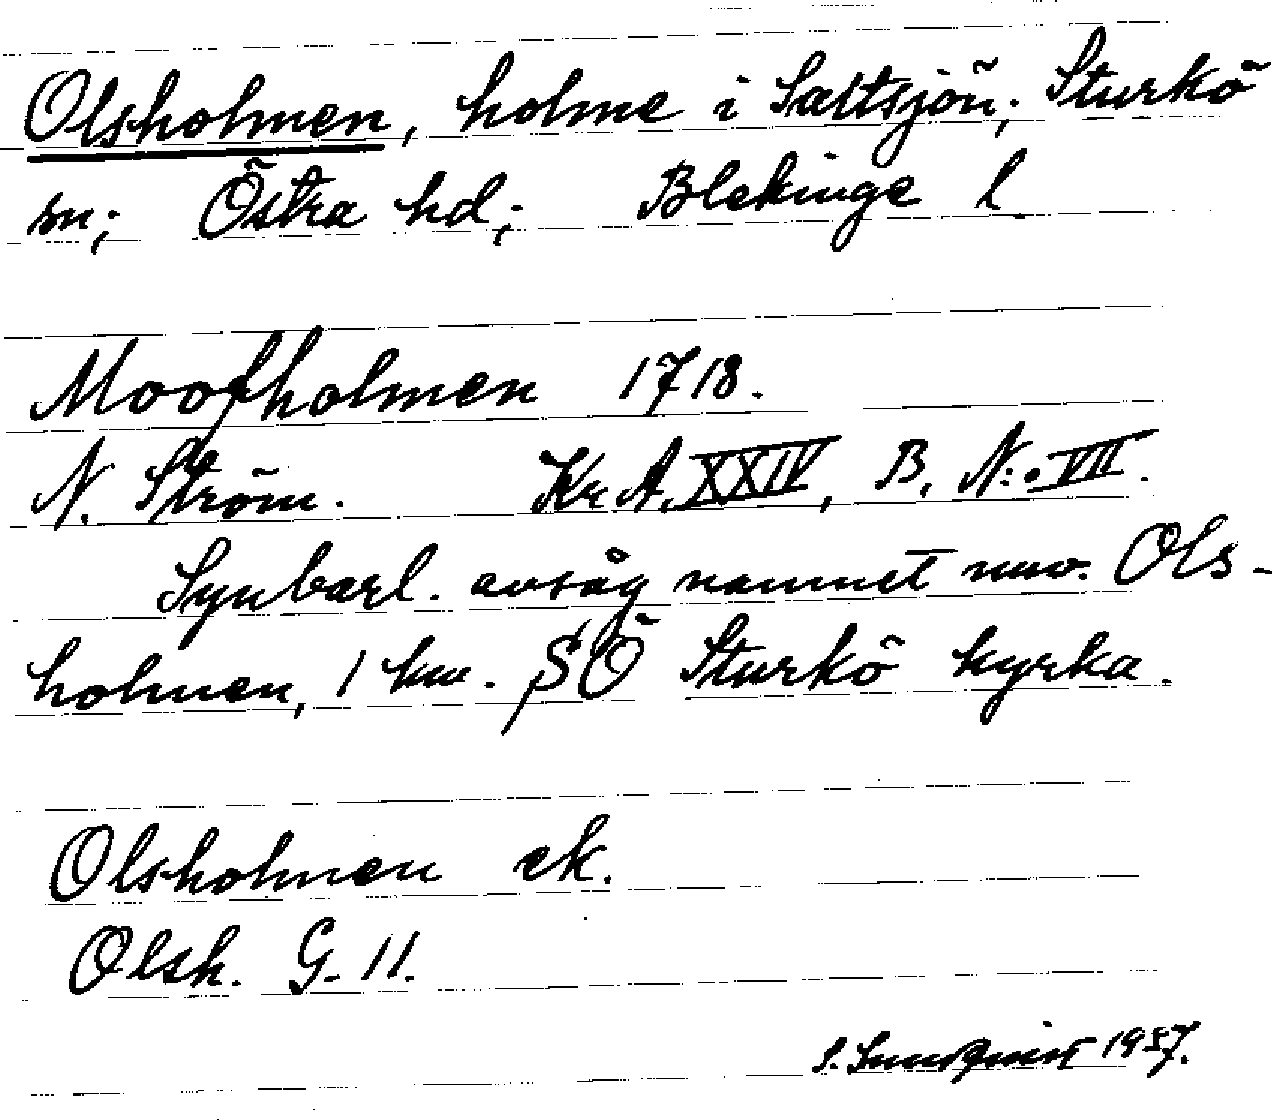 Olsholmen, holme i Saltsjön; Sturkö
sn; Östra hd; Blekinge l
Moosholmen 1718.
N. Ström. Kr.A. XXIV, B, N:o VII.
Synbarl. avsåg namnet nuv. Ols-
holmen, 1 km. SÖ Sturkö kyrka.
Olsholmen ek.
Olsh. G. 11.
S. Sundqvist 1957.